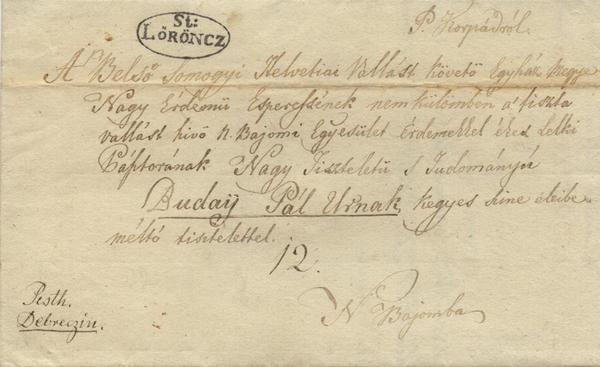 St:
LőRöNCZ
P. Korpádról.
A' Belső Somogyi Helvetiai Vallást követő Egyház Megye
Nagy Érdemü Esperessének nem külömben a' tiszta
vallást hivő N. Bajomi Egyesület Érdemekkel ékes Lelki
Pásztorának Nagy Tiszteletü s Tudományú
Buday Pál Urnak kegyes szine eleibe
méltó tisztelettel.
12.
Pesth.
Debreczin.
N Bajomba